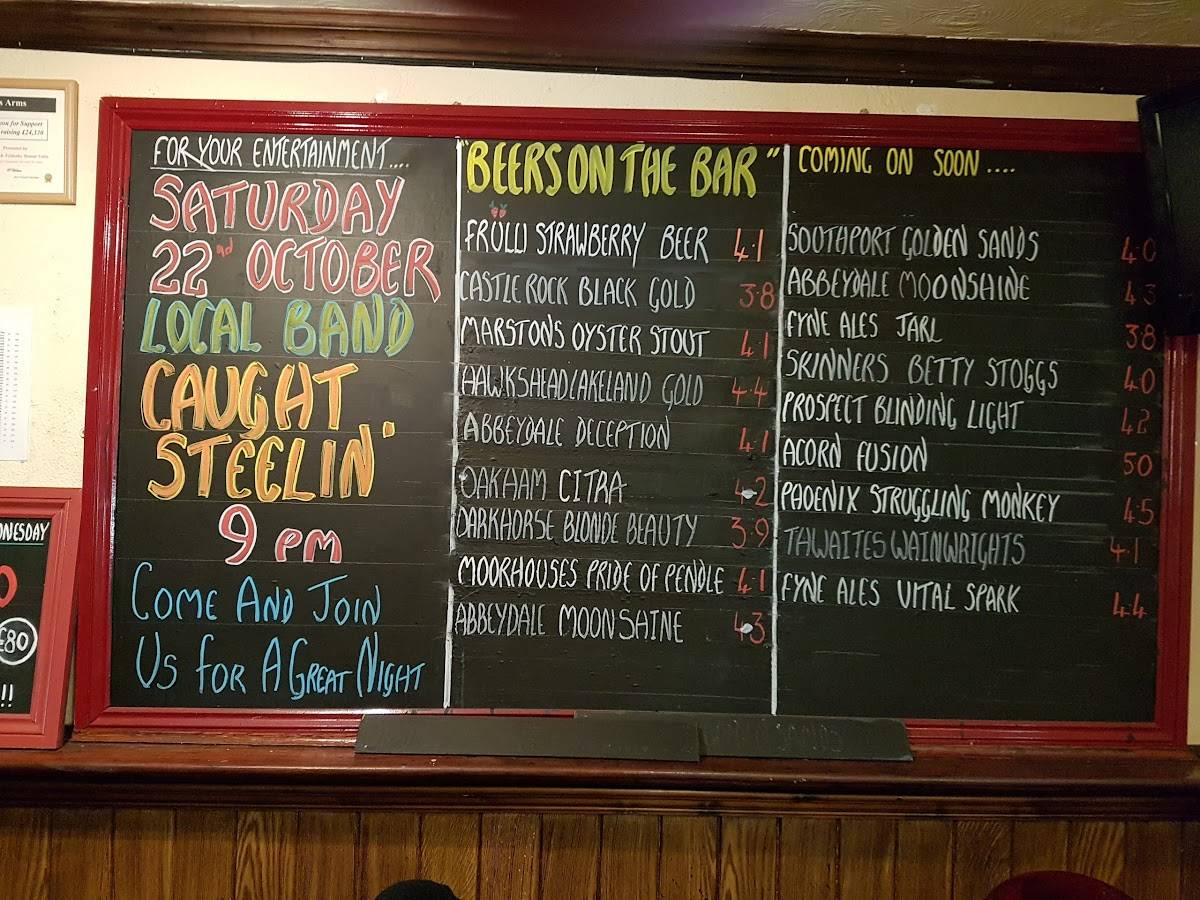 s Arms
you for Support
raising £24,310
FOR YOUR ENTERTAINMENT....
SATURDAY
22nd OCTOBER
LOCAL BAND
CAUGHT
STEELIN'
9 PM
COME AND JOIN
US FOR A GREAT NIGHT
"BEERS ON THE BAR"
FRÜLLI STRAWBERRY BEER 4.1
CASTLE ROCK BLACK GOLD 3.8
MARSTONS OYSTER STOUT 4.1
HAWKSHEAD LAKELAND GOLD 4.4
ABBEYDALE DECEPTION 4.1
OAKHAM CITRA 4.2
DARKHORSE BLONDE BEAUTY 3.9
MOORHOUSES PRIDE OF PENDLE 4.1
ABBEYDALE MOONSHINE 4.3
COMING ON SOON....
SOUTHPORT GOLDEN SANDS 4.0
ABBEYDALE MOONSHINE 4.3
FYNE ALES JARL 3.8
SKINNERS BETTY STOGGS 4.0
PROSPECT BLINDING LIGHT 4.2
ACORN FUSION 5.0
PHOENIX STRUGGLING MONKEY 4.5
THWAITES WAINWRIGHTS 4.1
FYNE ALES VITAL SPARK 4.4
DNESDAY
0
£80
!!